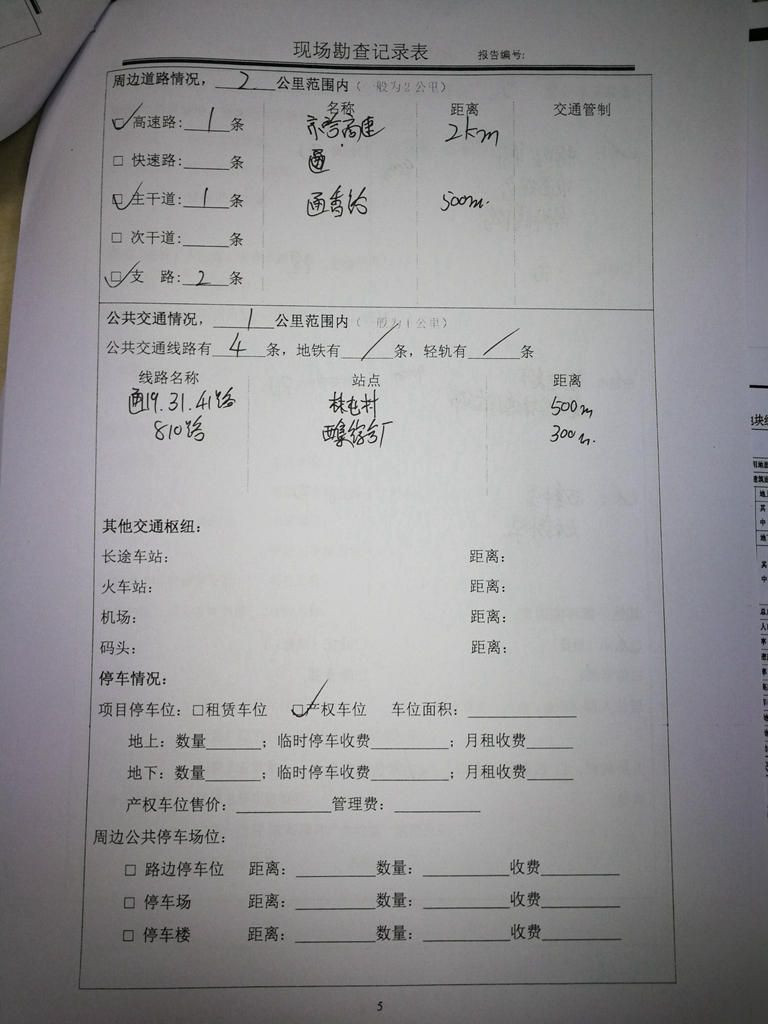 现场勘查记录表 报告编号:
周边道路情况，2公里范围内（一般为2公里）
名称 距离 交通管制
☑ 高速路: 1 条 京哈高速 2km
□ 快速路: 条 通
☑ 主干道: 1 条 通香路 500m.
□ 次干道: 条
☑ 支 路: 2 条
公共交通情况，1公里范围内（一般为1公里）
公共交通线路有 4 条，地铁有 / 条，轻轨有 / 条
线路名称 站点 距离
通19.31.41路 村 500m
810路 厂 300m.
其他交通枢纽:
长途车站: 距离:
火车站: 距离:
机场: 距离:
码头: 距离:
停车情况:
项目停车位: □租赁车位 ☑产权车位 车位面积:
地上: 数量 ; 临时停车收费 ; 月租收费
地下: 数量 ; 临时停车收费 ; 月租收费
产权车位售价: 管理费:
周边公共停车场位:
□ 路边停车位 距离: 数量: 收费
□ 停车场 距离: 数量: 收费
□ 停车楼 距离: 数量: 收费
5